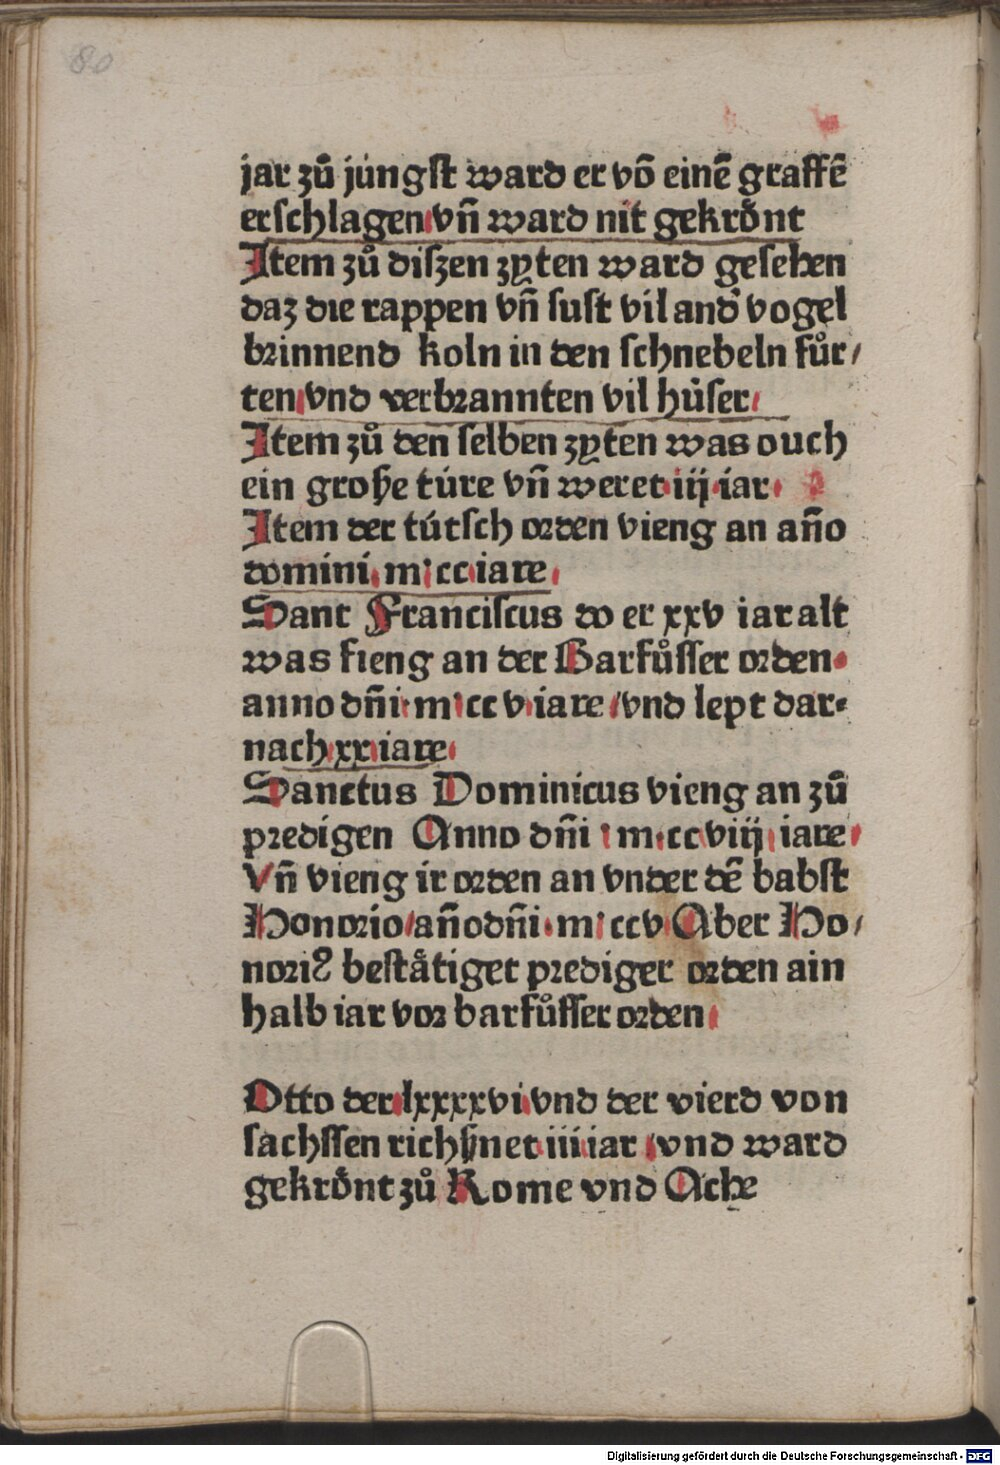 80
jar zů jüngst ward er võ einē graffē
erschlagen vñ ward nit gekrönt
Item zů diſzen zyten ward geſehen
daz die rappen vñ ſuſt vil and̕ vogel
brinnend koln in den ſchnebeln fůr/
ten vnd verbrannten vil hüſer
Item zů den ſelben zyten was ouch
ein große türe vñ weret iij iar
Item der tütſch orden vieng an año
domini m cc iare
Sant Franciſcus do er xxv iar alt
was fieng an der Barfůſſer orden
anno dñi m cc v iare vnd lept dar-
nach xx iare
Sanctus Dominicus vieng an zů
predigen Anno dñi m cc viij iare
Vñ vieng ir orden an vnder dē babſt
Honorio año dñi m ccv Aber Ho/
noriꝰ beſtätiget prediger orden ain
halb iar vor barfůſſer orden
Otto der lxxxxvi vnd der vierd von
ſachſſen richßnet iiii iar vnd ward
gekrönt zů Rome vnd Ache
Digitalisierung gefördert durch die Deutsche Forschungsgemeinschaft - DFG